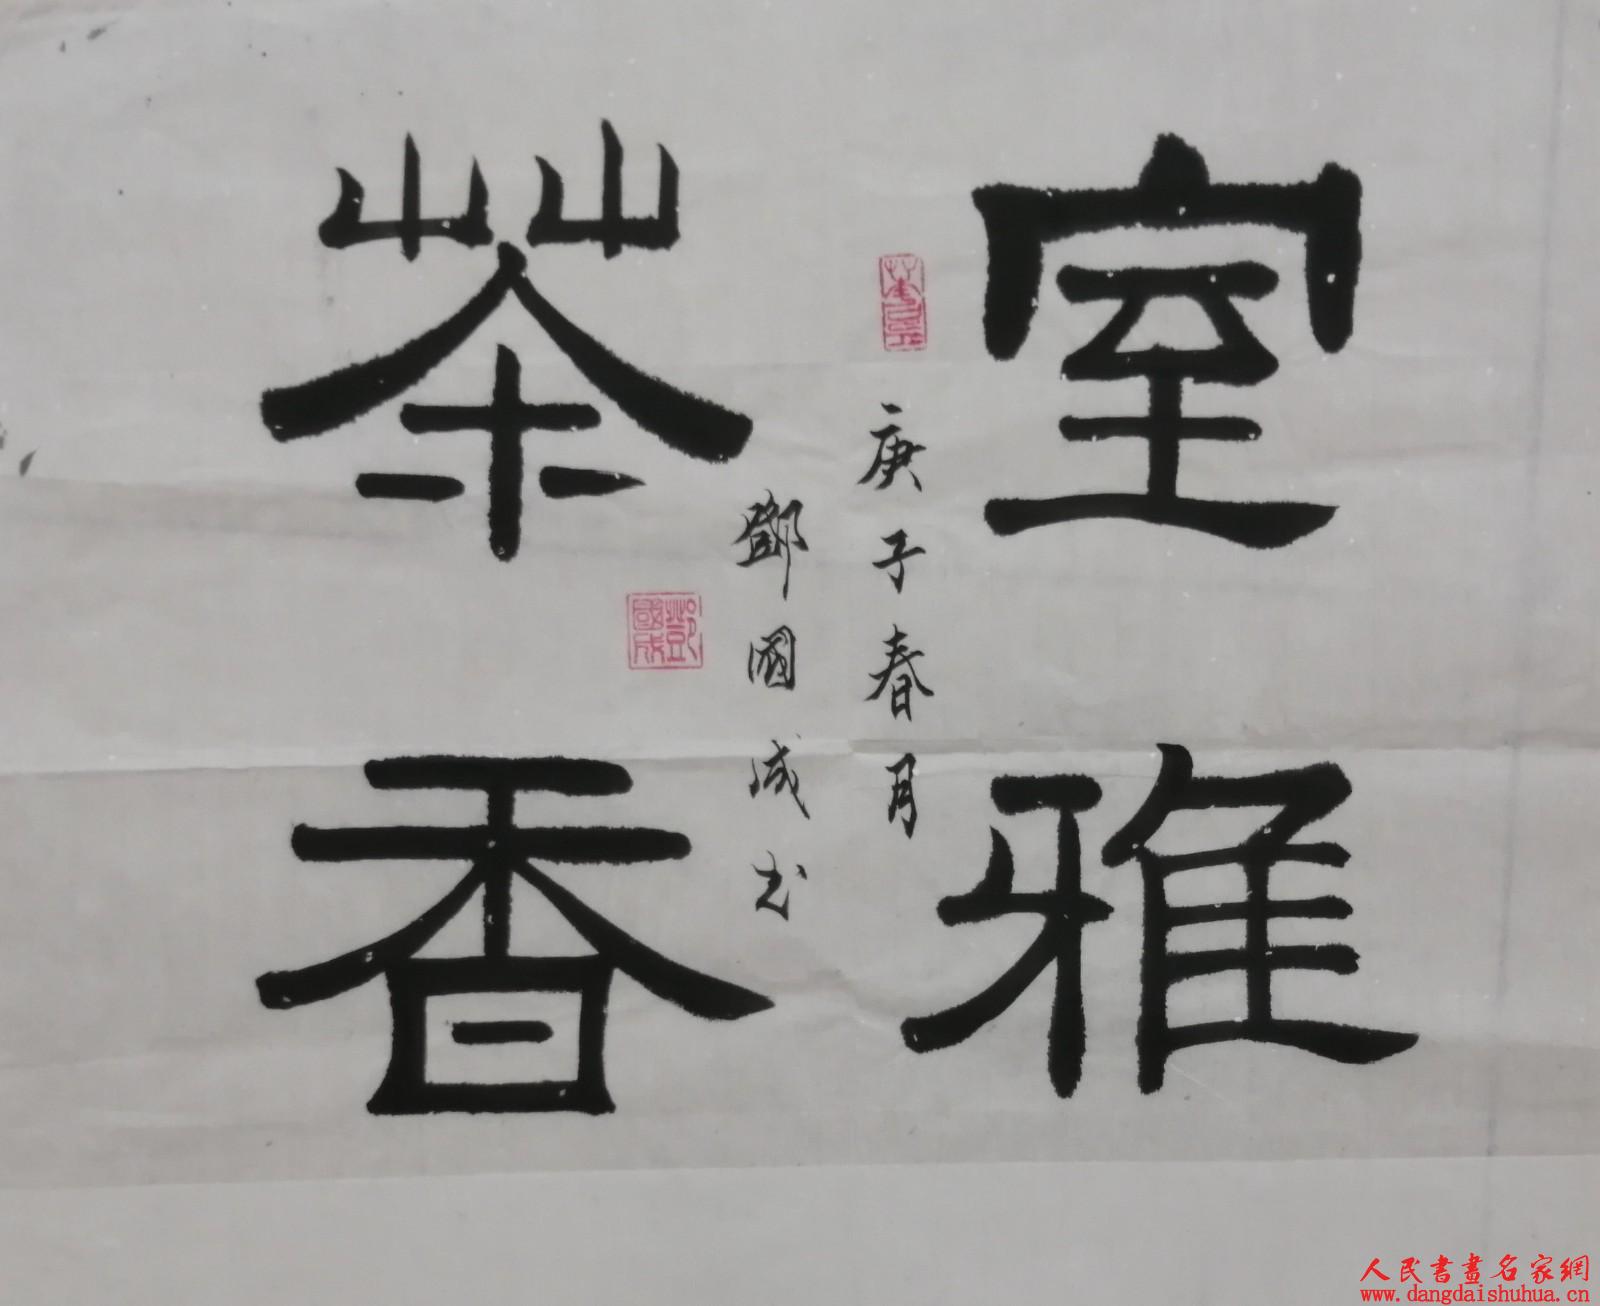 室雅
庚子春月
鄧國成书
茶香
鄧國成
人民書畫名家網
www.dangdaishuhua.cn